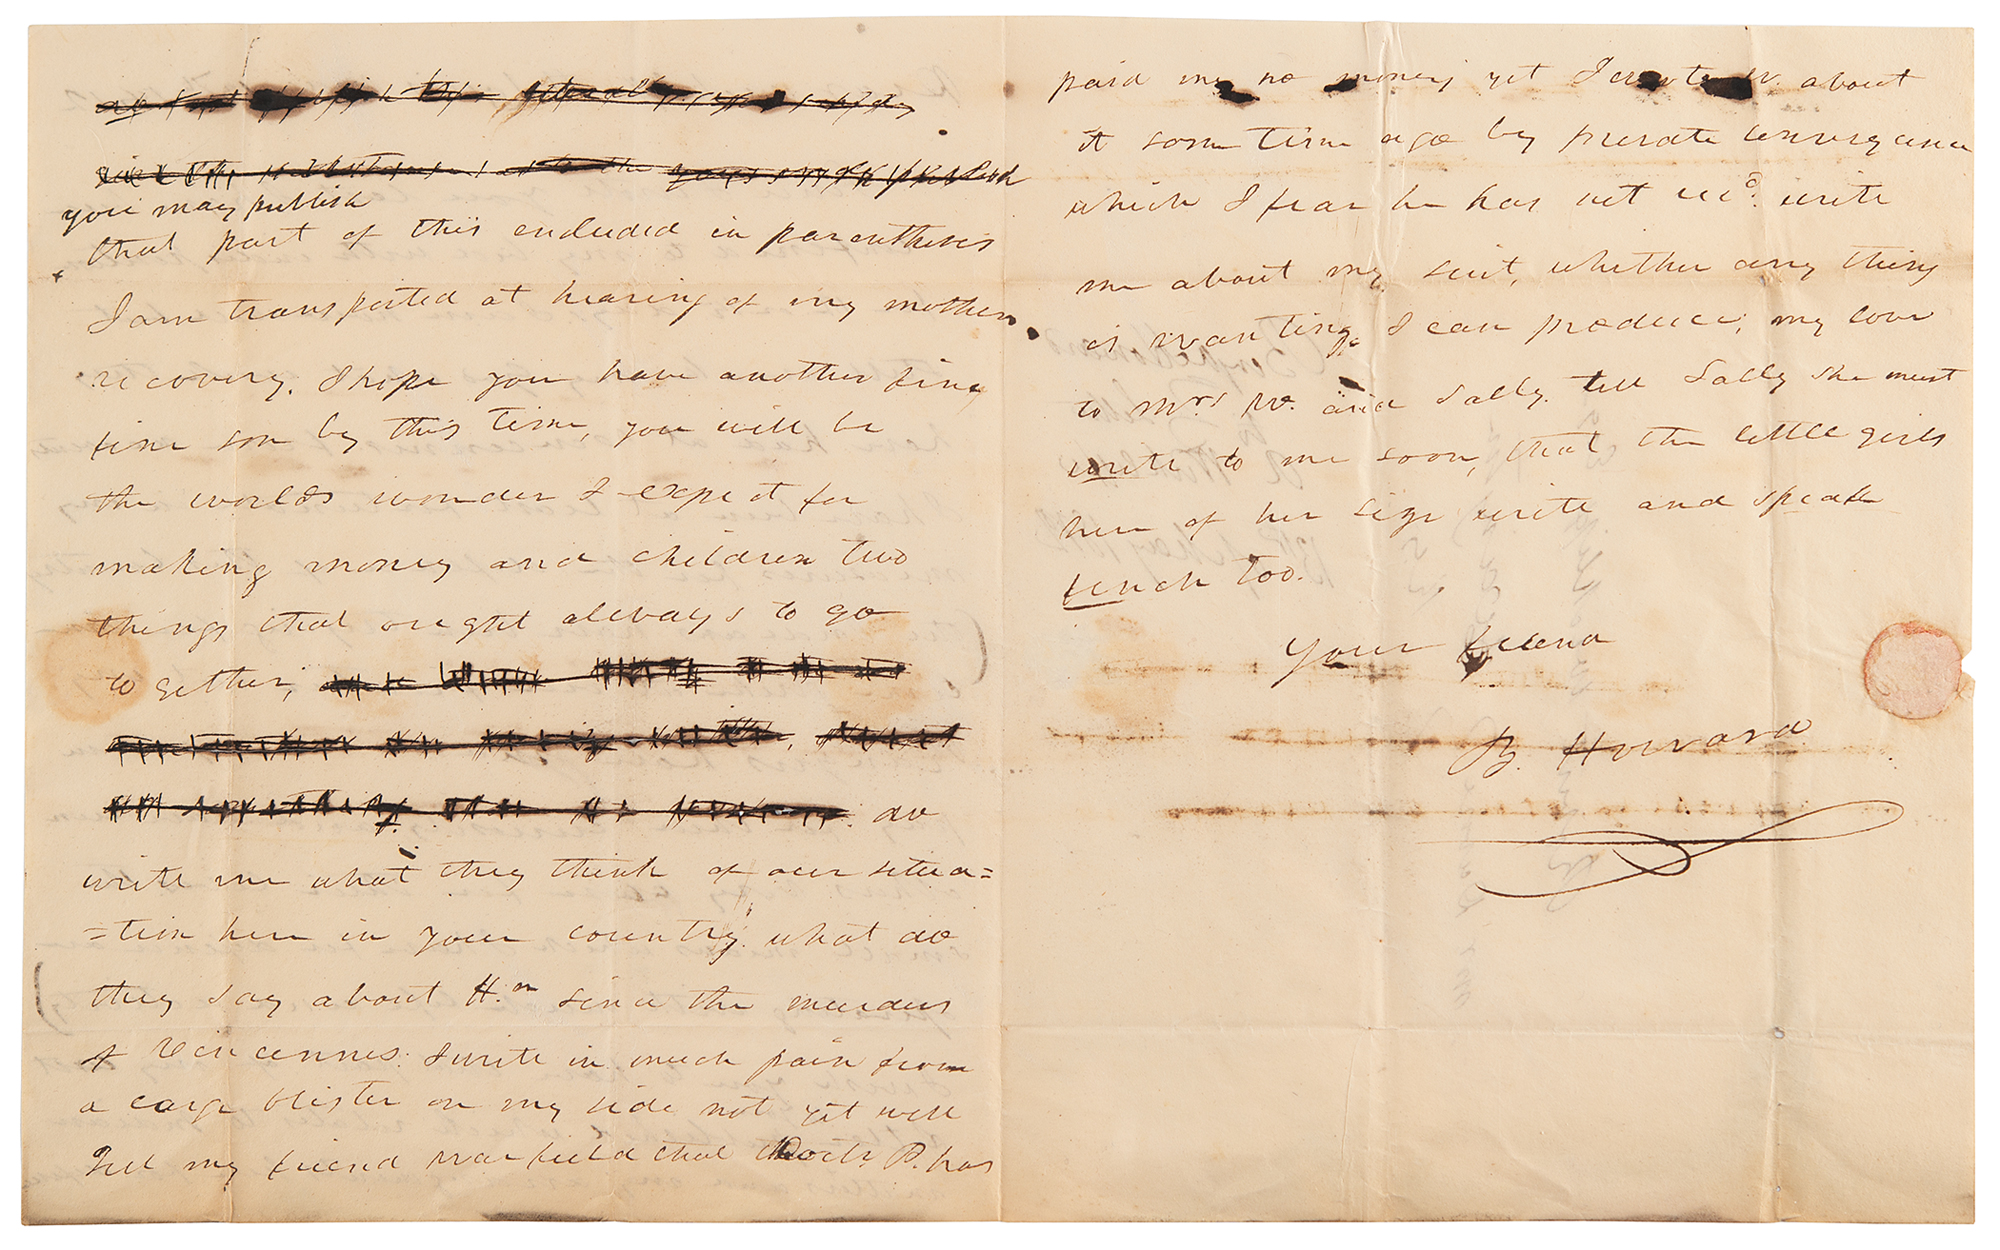 you may publish
that part of this encluded in parenthesis
I am transported at hearing of my mothers
recovery. I hope you have another fine
fine son by this time, you will be
the worlds wonder I expect for
making money and children two
things that ought always to go
to gether,
do
write me what they think of our situa=
=tion here in your country what do
they say about H.on since the murders
at Vincennes. I write in much pain from
a large blister on my side not yet well
Tell my friend Warfield that Doctr. P. has
paid me no money yet I wrote W. about
it some time ago by private conveyance
which I fear he has not recd. write
me about my suit, whether any thing
is wanting I can produce; my love
to Mrs W. and Sally. tell Sally she must
write to me soon, that the little girls
here of her size write and speak
french too.
Your friend
B. Howard